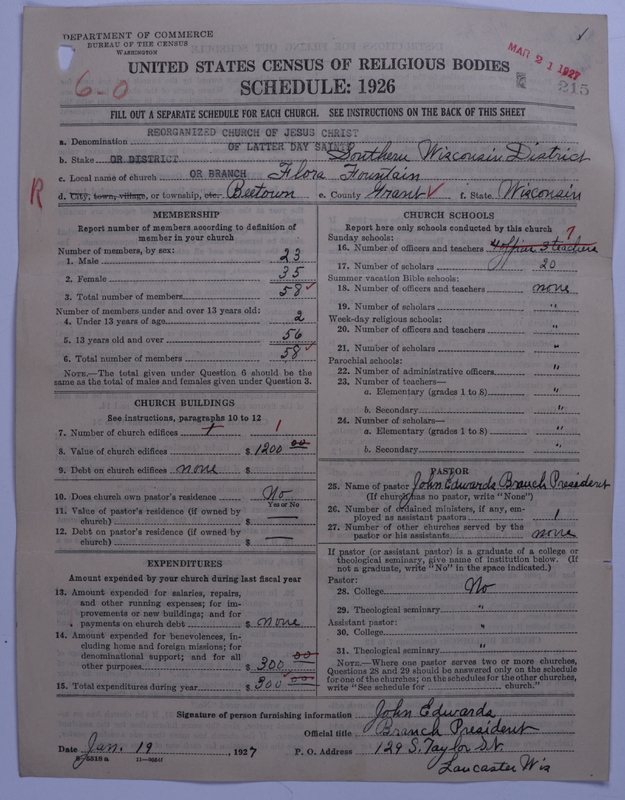 DEPARTMENT OF COMMERCE
BUREAU OF THE CENSUS
WASHINGTON
MAR 21 1927
215
6-0
UNITED STATES CENSUS OF RELIGIOUS BODIES
SCHEDULE: 1926
FILL OUT A SEPARATE SCHEDULE FOR EACH CHURCH. SEE INSTRUCTIONS ON THE BACK OF THIS SHEET
a. Denomination REORGANIZED CHURCH OF JESUS CHRIST
OF LATTER DAY SAINTS
b. Stake OR DISTRICT Southern Wisconsin District
c. Local name of church OR BRANCH Flora Fountain
R
d. City, town, village, or township, etc. Beetown e. County Grant f. State Wisconsin
MEMBERSHIP
Report number of members according to definition of
member in your church
Number of members, by sex:
1. Male 23
2. Female 35
3. Total number of members 58
Number of members under and over 13 years old:
4. Under 13 years of age 2
5. 13 years old and over 56
6. Total number of members 58
NOTE.—The total given under Question 6 should be the
same as the total of males and females given under Question 3.
CHURCH BUILDINGS
See instructions, paragraphs 10 to 12
7. Number of church edifices 1 1
8. Value of church edifices $ 1200 00
9. Debt on church edifices none $
10. Does church own pastor's residence No
Yes or No
11. Value of pastor's residence (if owned by
church) $ —
12. Debt on pastor's residence (if owned by
church) $ —
EXPENDITURES
Amount expended by your church during last fiscal year
13. Amount expended for salaries, repairs,
and other running expenses; for im-
provements or new buildings; and for
payments on church debt $ none
14. Amount expended for benevolences, in-
cluding home and foreign missions; for
denominational support; and for all
other purposes $ 300 00
15. Total expenditures during year $ 300 00
CHURCH SCHOOLS
Report here only schools conducted by this church
Sunday schools: 7
16. Number of officers and teachers 4 officers 3 teachers
17. Number of scholars 20
Summer vacation Bible schools:
18. Number of officers and teachers none
19. Number of scholars "
Week-day religious schools:
20. Number of officers and teachers "
21. Number of scholars "
Parochial schools:
22. Number of administrative officers "
23. Number of teachers—
a. Elementary (grades 1 to 8) "
b. Secondary "
24. Number of scholars—
a. Elementary (grades 1 to 8) "
b. Secondary "
PASTOR
25. Name of pastor John Edwards Branch President
(If church has no pastor, write "None")
26. Number of ordained ministers, if any, em-
ployed as assistant pastors 1
27. Number of other churches served by the
pastor or his assistants none
If pastor (or assistant pastor) is a graduate of a college or
theological seminary, give name of institution below. (If
not a graduate, write "No" in the space indicated.)
Pastor:
28. College No
29. Theological seminary "
Assistant pastor:
30. College "
31. Theological seminary "
NOTE.—Where one pastor serves two or more churches,
Questions 28 and 29 should be answered only on the schedule
for one of the churches; on the schedules for the other churches,
write "See schedule for church."
Signature of person furnishing information John Edwards
Official title Branch President
Date Jan. 19, 1927 P. O. Address 129 S. Taylor St
Lancaster Wis